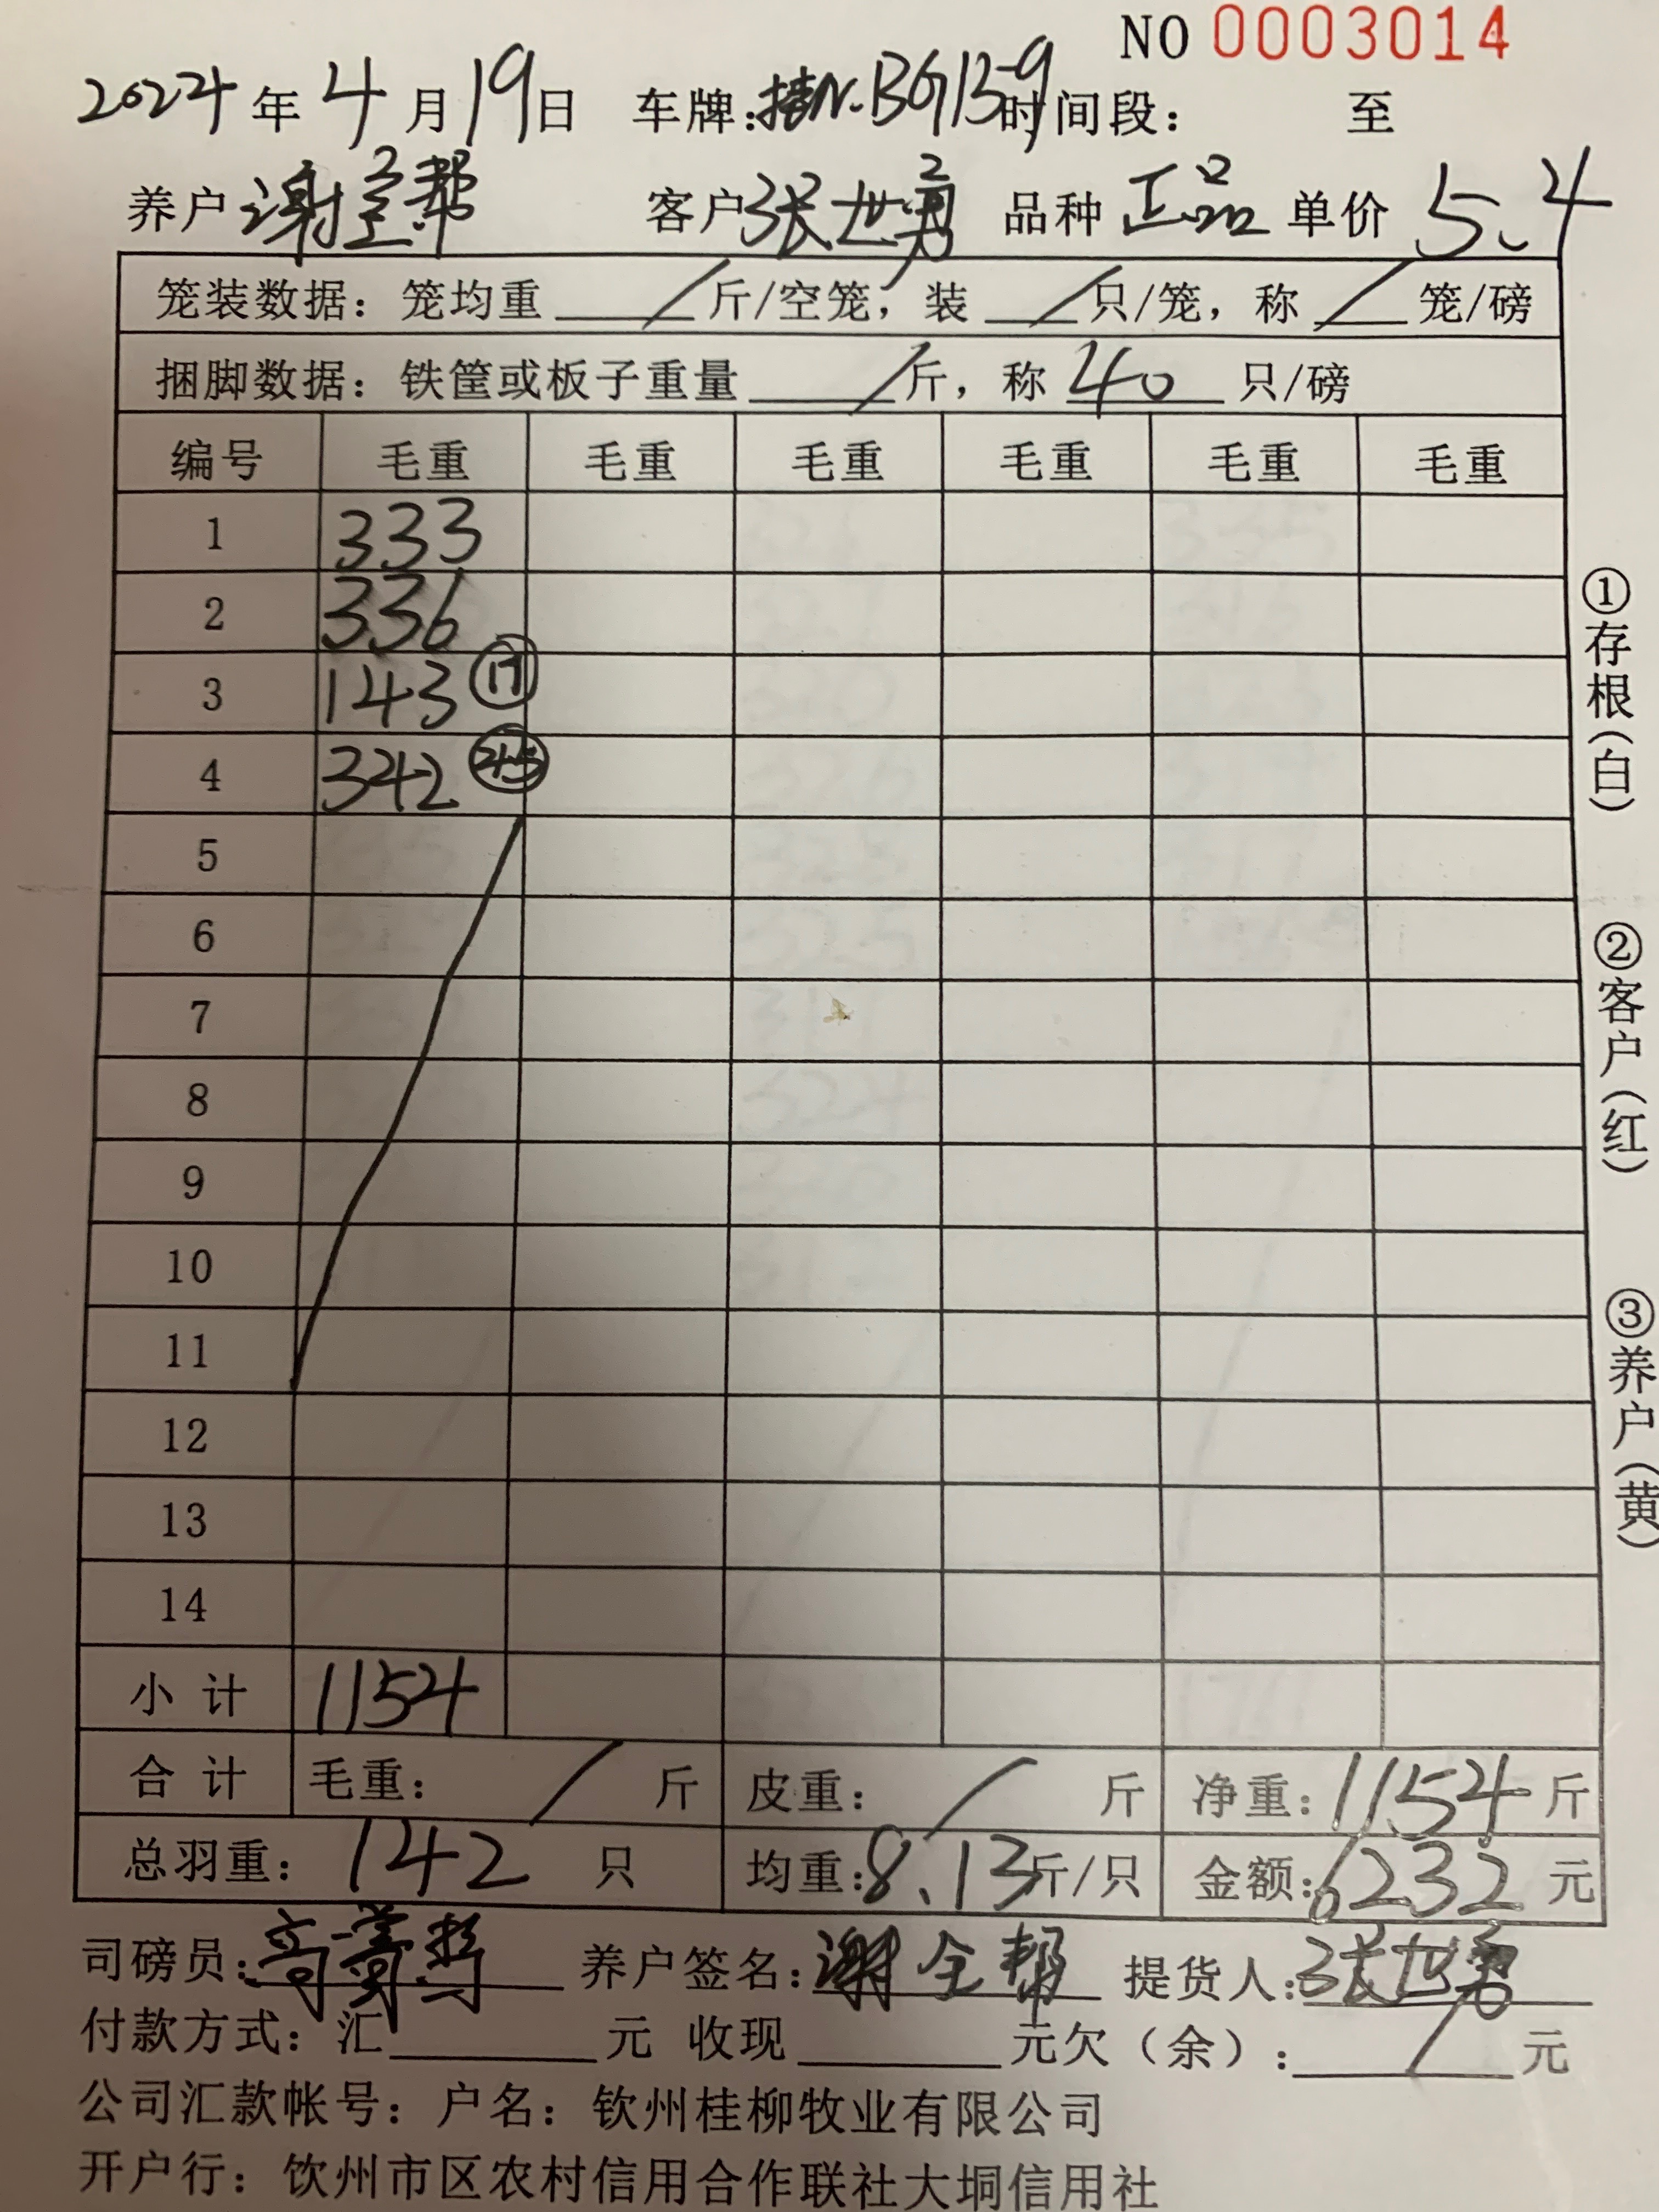 NO 0003014
2024年4月19日 车牌:桂N.BG1359 时间段: 至
养户 谢全帮 客户 张世勇 品种 正品 单价 5.4
笼装数据: 笼均重 / 斤/空笼, 装 / 只/笼, 称 / 笼/磅
捆脚数据: 铁筐或板子重量 / 斤, 称 40 只/磅
编号 毛重 毛重 毛重 毛重 毛重 毛重
1 333
2 336
3 143 17
4 342 45
5
6
7
8
9
10
11
12
13
14
小计 1154
合计 毛重: / 斤 皮重: / 斤 净重: 1154 斤
总羽重: 142 只 均重: 8.13 斤/只 金额: 6232 元
司磅员: 养户签名: 谢全帮 提货人: 张世勇
付款方式: 汇 元 收现 元欠(余): / 元
公司汇款帐号: 户名: 钦州桂柳牧业有限公司
开户行: 钦州市区农村信用合作联社大垌信用社
①存根(白)
②客户(红)
③养户(黄)